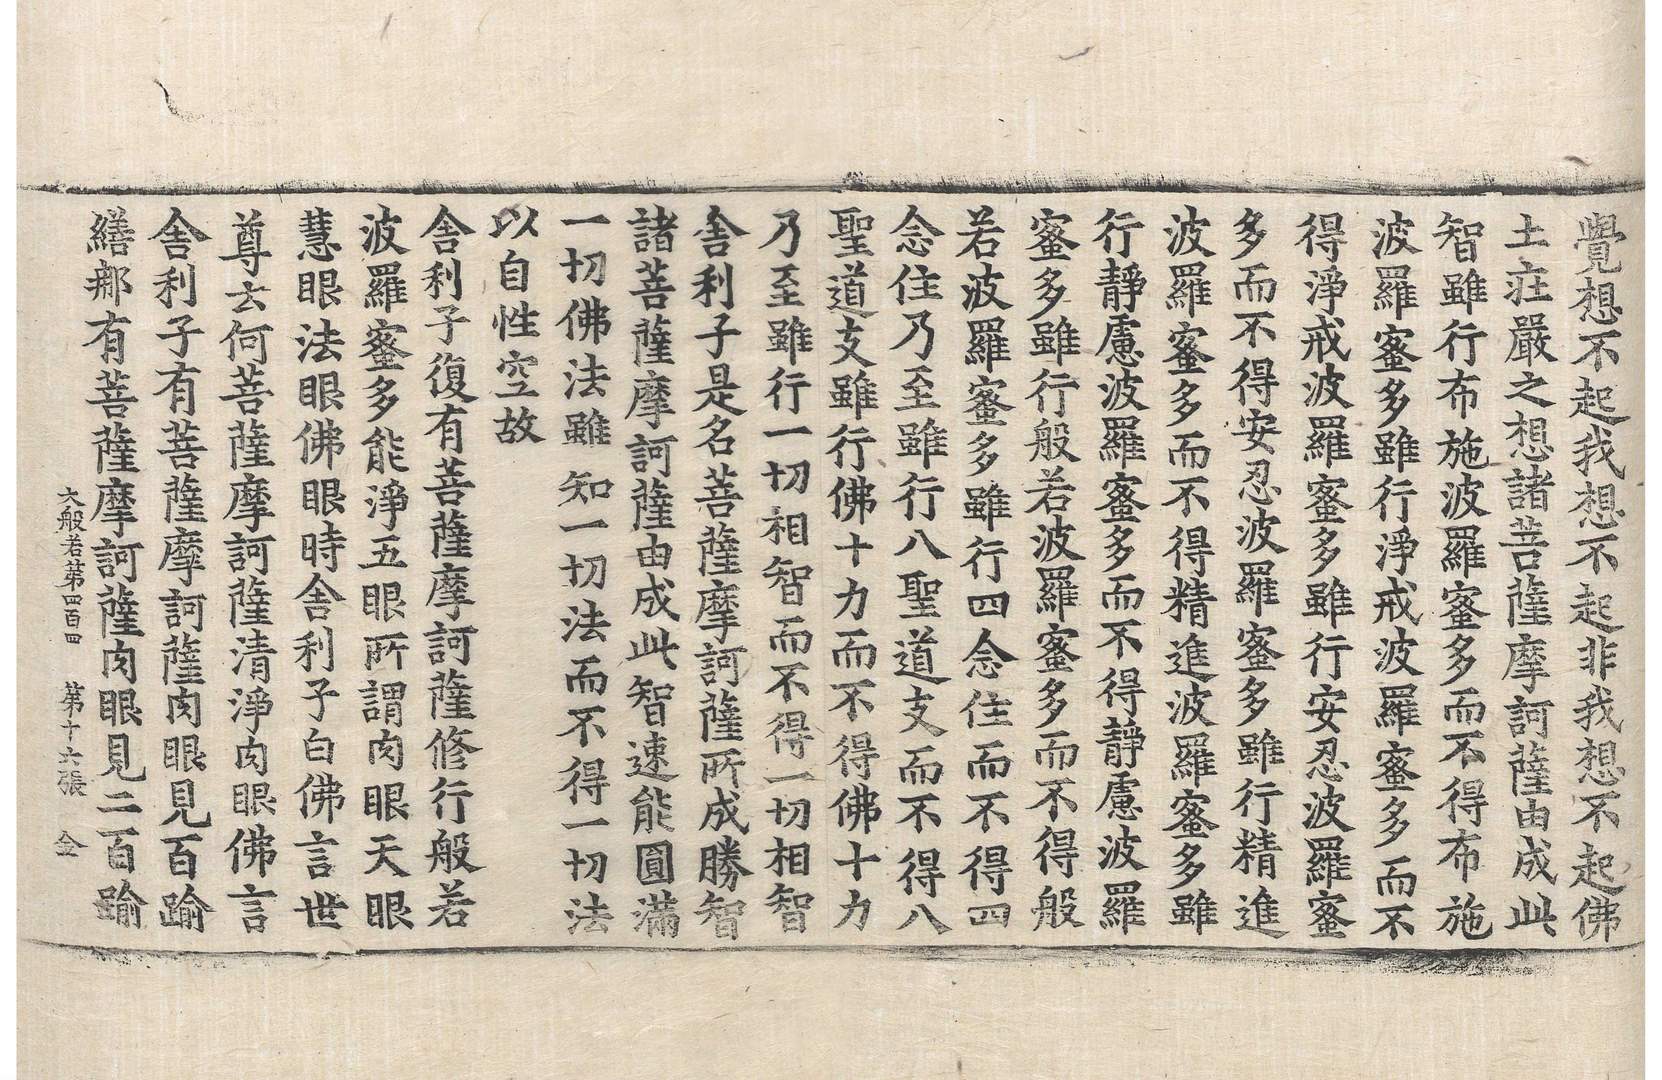 覺想不起我想不起非我想不起佛
土莊嚴之想諸菩薩摩訶薩由成此
智雖行布施波羅蜜多而不得布施
波羅蜜多雖行淨戒波羅蜜多而不
得淨戒波羅蜜多雖行安忍波羅蜜
多而不得安忍波羅蜜多雖行精進
波羅蜜多而不得精進波羅蜜多雖
行靜慮波羅蜜多而不得靜慮波羅
蜜多雖行般若波羅蜜多而不得般
若波羅蜜多雖行四念住而不得四
念住乃至雖行八聖道支而不得八
聖道支雖行佛十力而不得佛十力
乃至雖行一切相智而不得一切相智
舍利子是名菩薩摩訶薩所成勝智
諸菩薩摩訶薩由成此智速能圓滿
一切佛法雖知一切法而不得一切法
以自性空故
舍利子復有菩薩摩訶薩修行般若
波羅蜜多能淨五眼所謂肉眼天眼
慧眼法眼佛眼時舍利子白佛言世
尊云何菩薩摩訶薩清淨肉眼佛言
舍利子有菩薩摩訶薩肉眼見百踰
繕那有菩薩摩訶薩肉眼見二百踰
大般若第四百四 第十六張 金